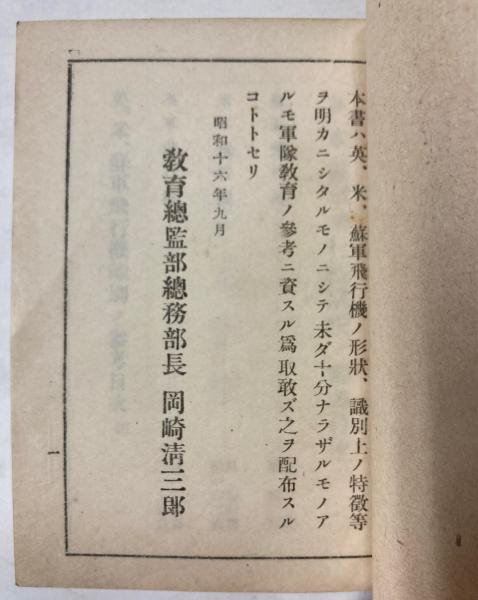 本書ハ英、米、蘇軍飛行機ノ形狀、識別上ノ特徵等
ヲ明カニシタルモノニシテ未ダ十分ナラザルモノア
ルモ軍隊敎育ノ參考ニ資スル爲取敢ズ之ヲ配布スル
コトトセリ
昭和十六年九月
敎育總監部總務部長 岡崎淸三郎
一